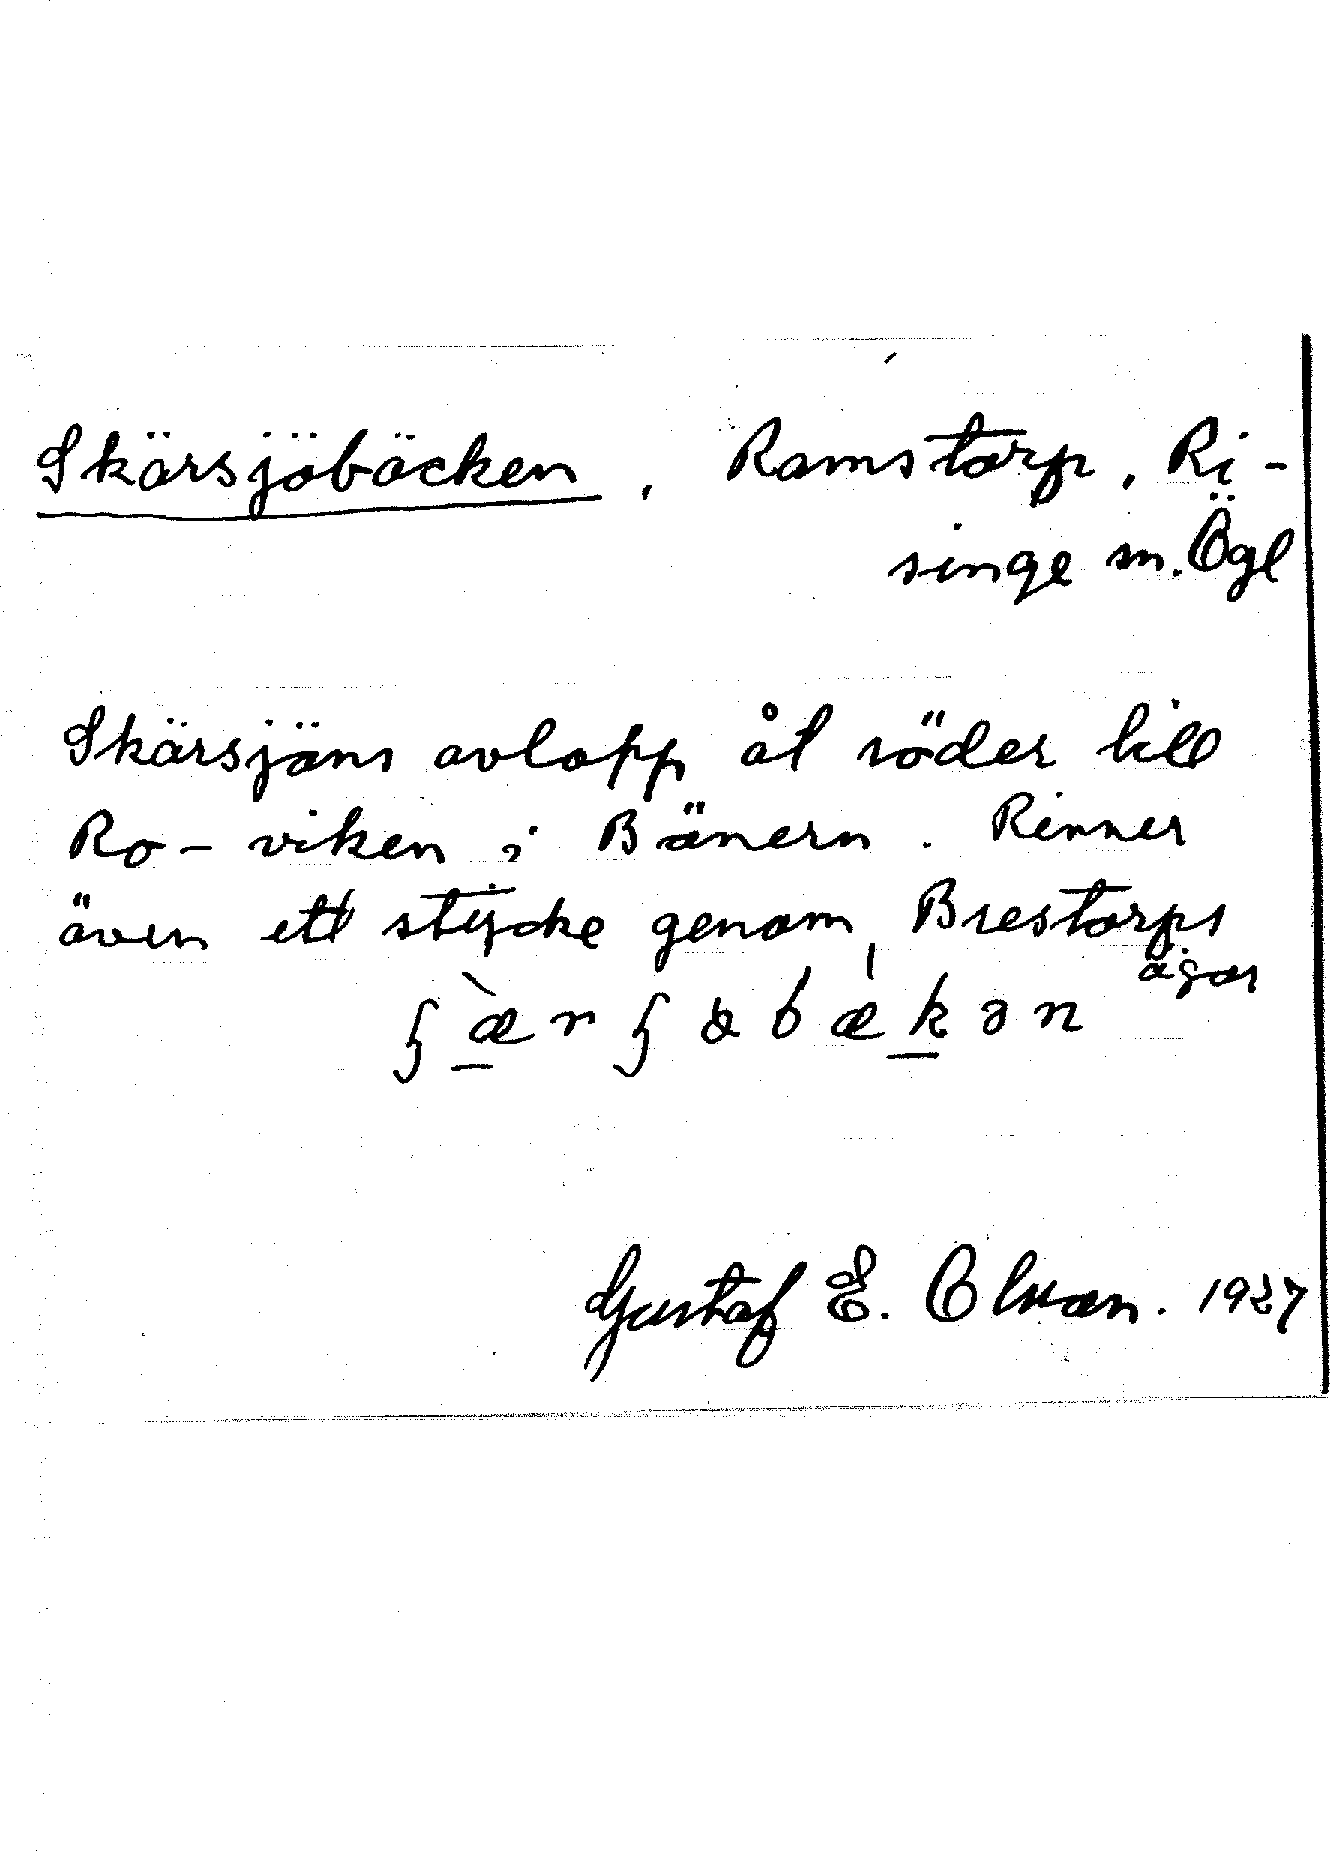 Skärsjöbäcken, Ramstorp, Ri-
singe sn. Ögl
Skärsjöns avlopp åt söder till
Ro-viken i Bönern. Rinner
även ett stycke genom Brestorps
ägor
Gustaf E. Olson. 1927